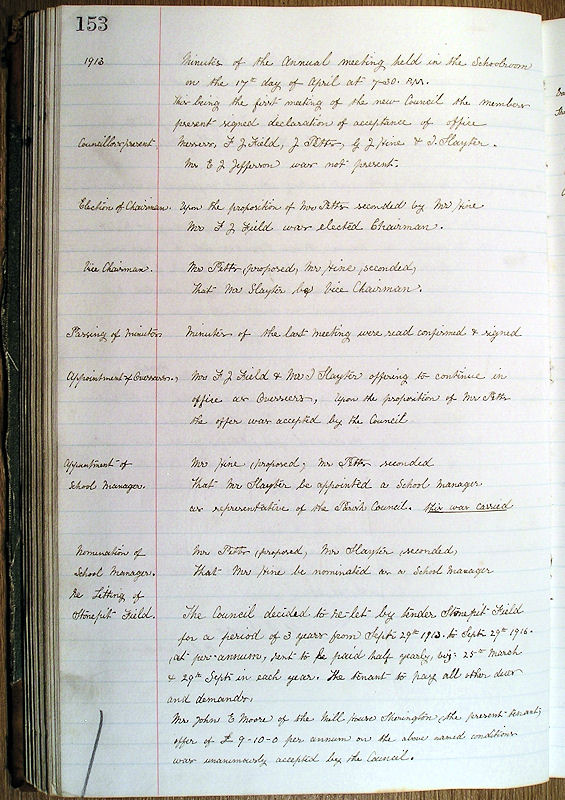 153
1913 Minutes of the Annual meeting held in the Schoolroom
on the 17th day of April at 7-30. P.M.
This being the first meeting of the new Council the members
present signed declaration of acceptance of office
Councillors present. Messrs. F J Field, J Petts, G J Hine & T. Slayter.
Mr E J Jefferson was not present.
Election of Chairman. Upon the proposition of Mr Petts seconded by Mr Hine
Mr F J Field was elected Chairman.
Vice Chairman. Mr Petts, proposed, Mr Hine, seconded,
That Mr Slayter be Vice Chairman.
Passing of Minutes Minutes of the last meeting were read confirmed & signed
Appointment of Overseers., Mr F J Field & Mr T Slayter offering to continue in
office as Overseers, Upon the proposition of Mr Petts
the offer was accepted by the Council
Appointment of Mr Hine, proposed, Mr Petts seconded
School Manager. That Mr Slayter be appointed a School Manager
as representative of the Parish Council. This was carried
Nomination of Mr Petts, proposed, Mr Slayter, seconded,
School Manager. That Mr Hine be nominated as a School Manager
Re Letting of
Stonepit Field. The Council decided to Re-let by tender Stonepit Field
for a period of 3 years from Sept. 29th 1913. to Sept. 29th 1916.
(at per annum, rent to be paid half yearly, viz. 25th March
& 29th Sept. in each year. The tenant to pay all other dues
and demands.
Mr John E Moore of the Mill House Sherington, the present tenant,
offer of £ 9-10-0 per annum on the above named conditions
was unanimously accepted by the Council.